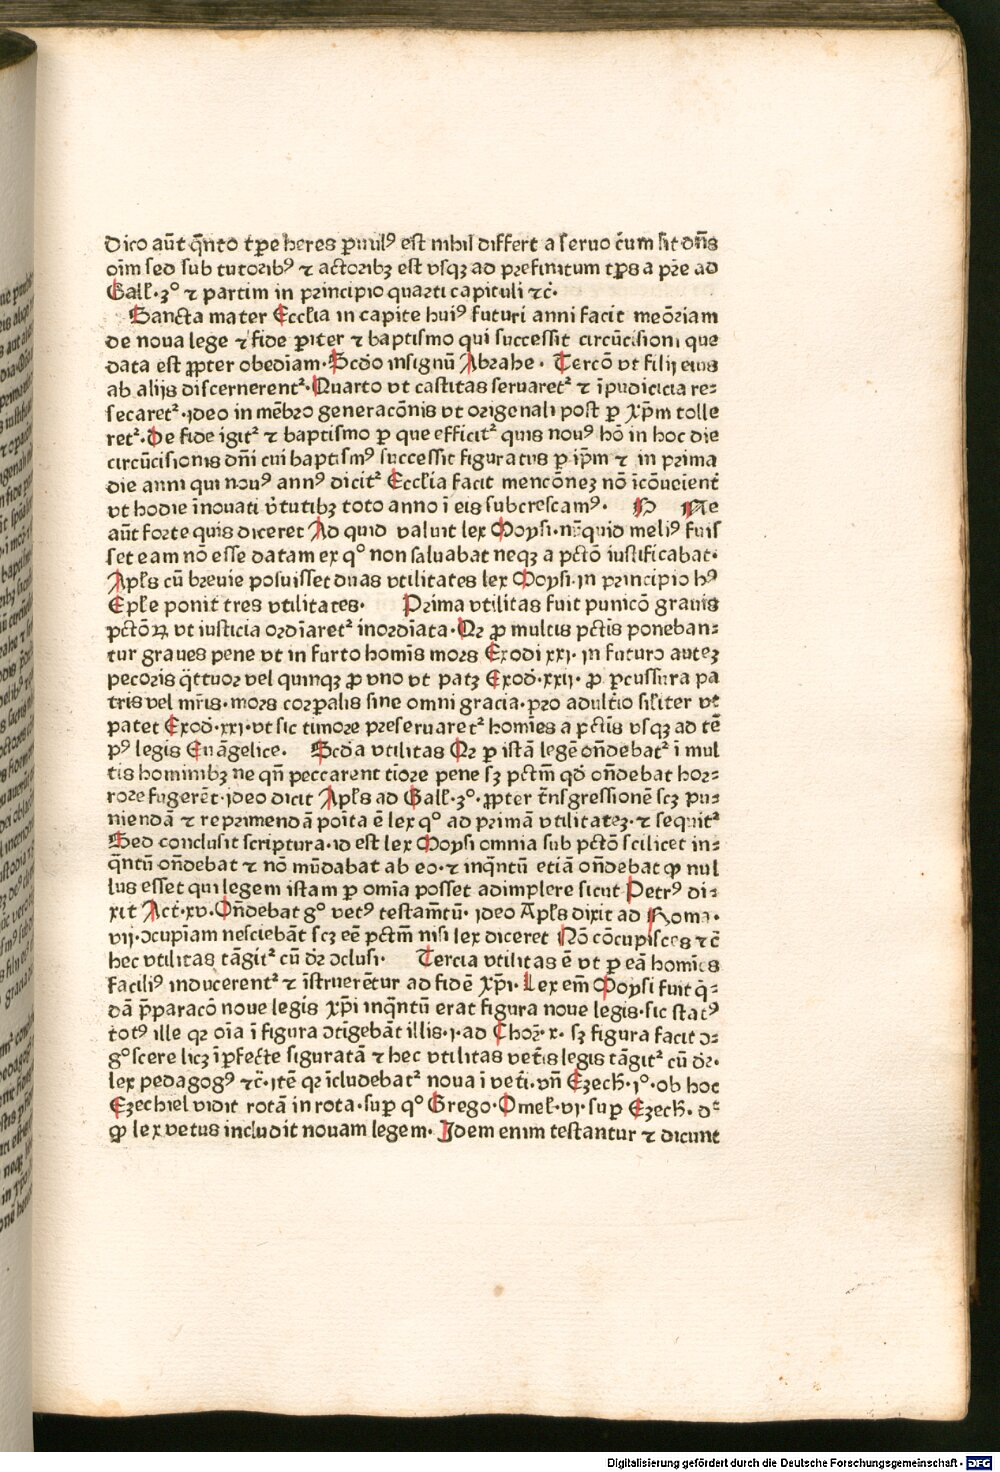 Dico aūt q̄nto tꝑe heres ꝑuulꝰ est nihil differt a seruo cūm sit dn̄s
oīm sed sub tutoribꝰ ⁊ actoribꝫ est vsqꝫ ad prefinitum tp̄s a pr̄e ad
Gall̄·ꝫ° ⁊ partim in principio quarti capituli ⁊c̄·
Sancta mater Eccl̄ia in capite huiꝰ futuri anni facit meōriam
de noua lege ⁊ fide ꝑiter ⁊ baptismo qui successit circūcisioni que
data est ꝓpter obediam̄· Scd̄o insignū Abrahe · Tercō vt filij eius
ab alijs discernerentᷣ· Quarto vt castitas seruaretᷣ ⁊ īpudicicia re⸗
secaretᷣ ·ideo in mēbro generacōnis vt origenali post ꝑ xp̄m tolle
retᷣ· De fide igitᷣ ⁊ baptismo ꝑ que efficitᷣ quis nouꝰ hō in hoc die
circūcisionis dn̄i cui baptismꝰ successit figuratus ꝑ ip̄m ⁊ in prima
die anni qui nouꝰ annꝰ dicitᷣ Eccl̄ia facit mencōneꝫ nō īcōuenient̄
vt hodie īnouati v̄tutibꝫ toto anno ī eis subcrescamꝰ· Ne
aūt forte quis diceret Ad quid valuit lex Moysi·nūquid meliꝰ fuis
set eam nō esse datam ex q° non saluabat neqꝫ a pctō iustificabat·
Apl̄s cū breuie posuisset duas vtilitates lex Moysi·in principio hꝰ
Epl̄e ponit tres vtilitates· Prima vtilitas fuit punicō grauis
pctōꝝ vt iusticia ordīaretᷣ inordīata· Qꝛ ꝓ multis pctīs poneban⸗
tur graues pene vt in furto homīs mors Exodi xxi· in futuro auteꝫ
pecoris q̄ttuor vel quinqꝫ ꝓ vno vt patꝫ Exod̄·xxij· ꝓ ꝑcussura pa
tris vel mr̄is· mors corꝑalis sine omni gracia· pro adultīo sil̄iter vt
patet Exod̄·xxi· vt sic timore preseruaretᷣ homīes a pctīs vsqꝫ ad tē
pꝰ legis Euāgelice· Scd̄a vtilitas Qꝛ ꝑ istā legē on̄debatᷣ ī mul
tis hominibꝫ ne qn̄ peccarent tīore pene sꝫ pctm̄ qd̄ on̄debat hor⸗
rore fugerēt·ideo dicit Apl̄s ad Gall̄·ꝫ°· ꝓpter tn̄sgressionē scꝫ pu⸗
niendā ⁊ reprimendā poīta ē lex q° ad primā vtilitateꝫ·⁊ sequitᷣ
Sed conclusit scriptura·id est lex Moysi omnia sub pctō scilicet in⸗
q̄ntū on̄debat ⁊ nō mūdabat ab eo·⁊ inq̄ntū etiā on̄debat ꝙ nul
lus esset qui legem istam ꝑ omīa posset adimplere sicut Petrꝰ di⸗
xit Act̄·xv· On̄debat g° vetꝰ testam̄tū· ideo Apl̄s dixit ad Roma·
vij·ↄcupīam nesciebāt scꝫ eē pctm̄ nisi lex diceret Nō cōcupisces ⁊c̄
hec vtilitas tāgitᷣ cū dr̄ ↄclusi· Tercia vtilitas ē vt ꝑ eā homīes
faciliꝰ inducerentᷣ ⁊ īstruerētur ad fidē xp̄i· Lex em̄ Moysi fuit q̄⸗
dā p̄paracō noue legis xp̄i inq̄ntū erat figura noue legis·sic statꝰ
totꝰ ille qꝛ oīa ī figura ↄtīgebāt illis·i·ad Chor̄·x· sꝫ figura facit ↄ⸗
g°scere licꝫ īꝑfecte figuratā ⁊ hec vtilitas vet̄is legis tāgitᷣ cū dr̄·
lex pedagogꝰ ⁊c̄·itē qꝛ īcludebatᷣ noua ī vet̄i·vn̄ Ezech̄·i°·ob hoc
Ezechiel vidit rotā in rota·suꝑ q° Grego·Omel̄·vi·suꝑ Ezech̄· dᷣ
ꝙ lex vetus includit nouam legem· Idem enim testantur ⁊ dicunt
Digitalisierung gefördert durch die Deutsche Forschungsgemeinschaft · DFG